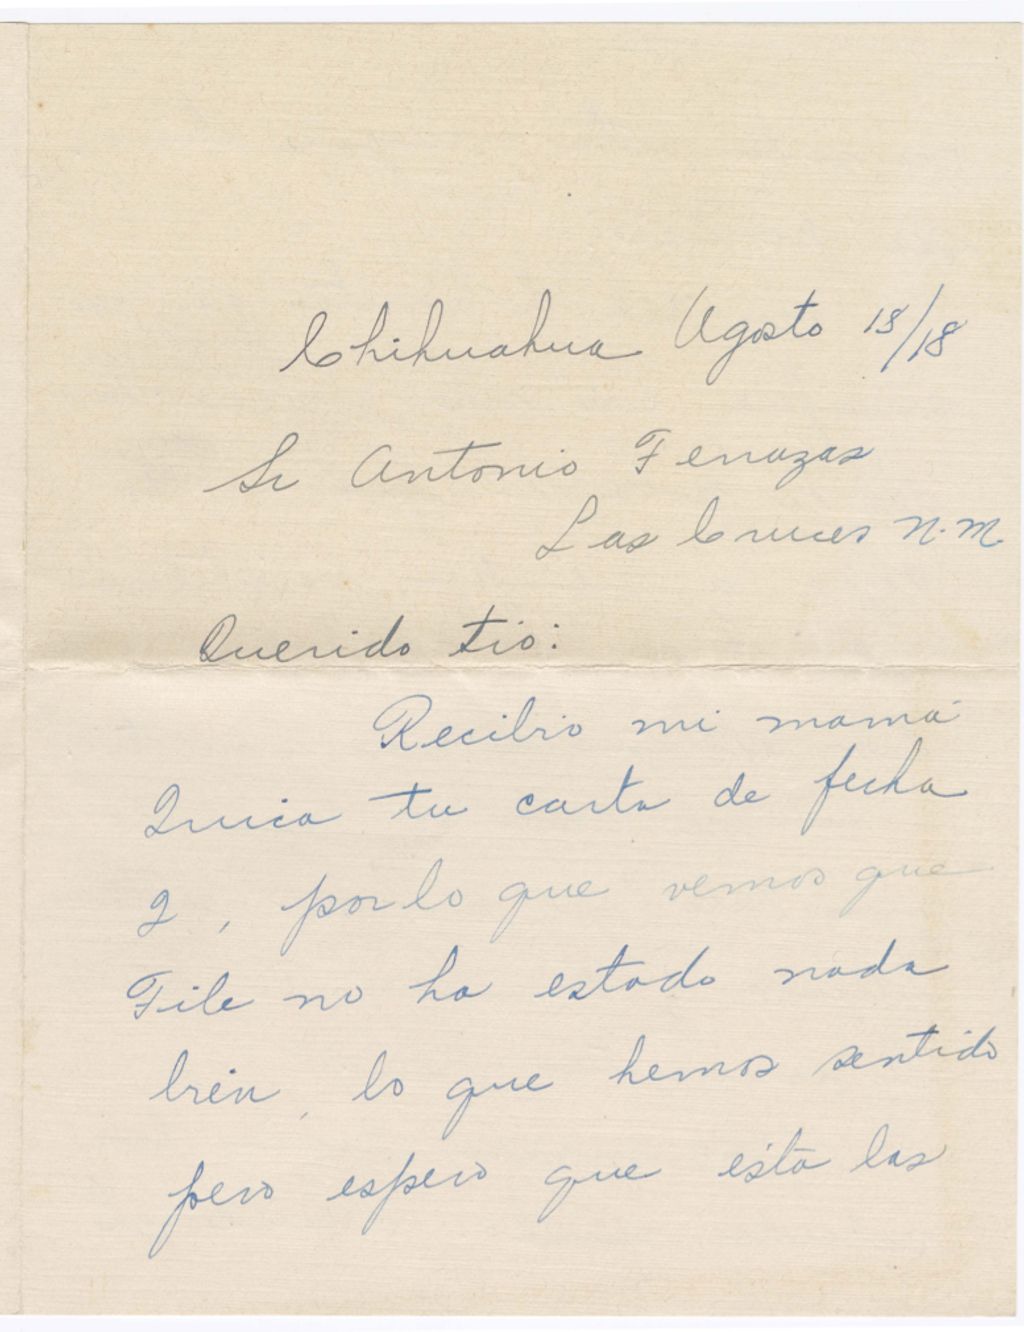 Chihuahua Agosto 18/18
Sr Antonio Terrazas
Las Cruces N.M.
Querido tio:
Recibio mi mamá
Quica tu carta de fecha
2, por lo que vemos que
File no ha estado nada
bien, lo que hemos sentido
pero espero que ésta las